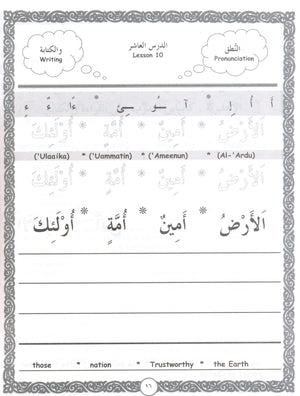 والكتابة
Writing
الدرس العاشر
Lesson 10
النُّطق
Pronunciation
أَ أُ إِ * آ ـئُو ـئِي * ءَا ءُ ءِ
اَلأَرْضُ * أَمِينٌ * أُمَّةٍ * أُوْلَئِكَ
(Al-'Ardu) * ('Ameenun) * ('Uammatin) * ('Ulaaika)
اَلأَرْضُ * أَمِينٌ * أُمَّةٍ * أُوْلَئِكَ
اَلأَرْضُ * أَمِينٌ * أُمَّةٍ * أُوْلَئِكَ
those * nation * Trustworthy * the Earth
١٦